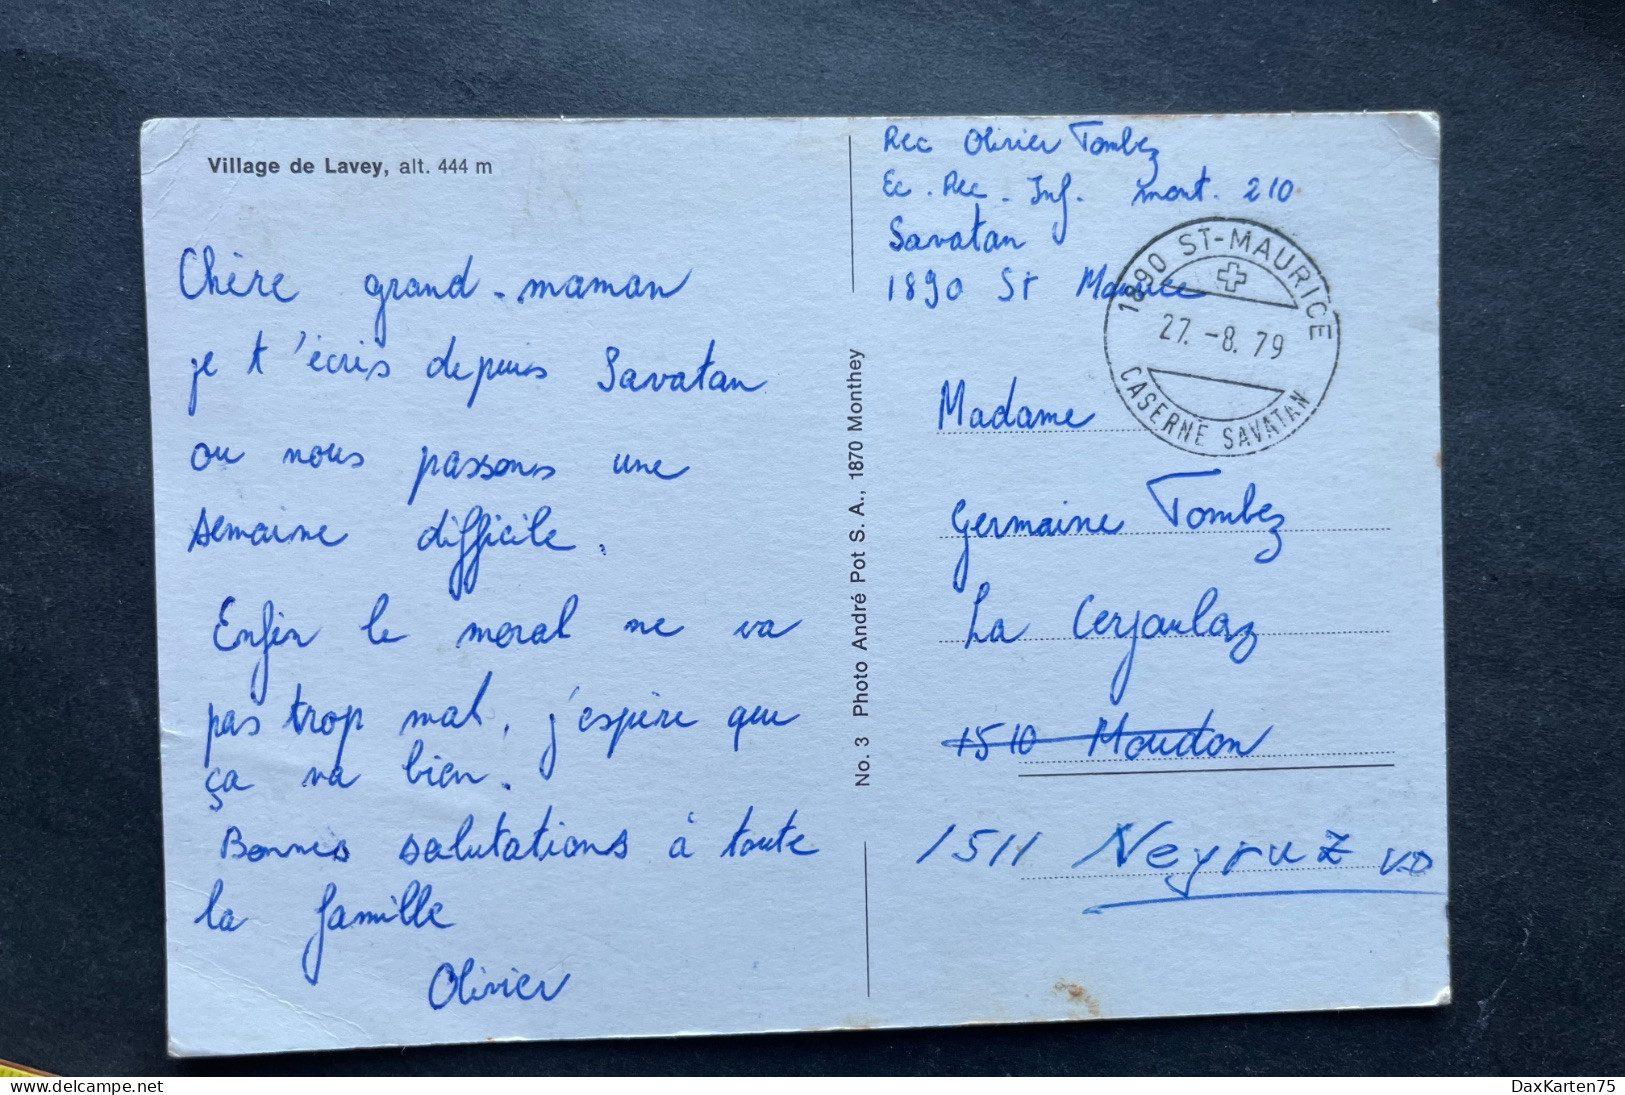 Village de Lavey, alt. 444 m
Chère grand-maman
je t'écris depuis Savatan
ou nous passons une
semaine difficile.
Enfin le moral ne va
pas trop mal, j'espère que
ça va bien.
Bonnes salutations à toute
la famille
Olivier
No. 3 Photo André Pot S. A., 1870 Monthey
Rec Olivier Tombez
Ec. Rec. Inf. mont. 210
Savatan
1890 St Maurice
1890 ST-MAURICE
27. -8. 79
CASERNE SAVATAN
Madame
Germaine Tombez
La Cerjaulaz
1510 Moudon
1511 Neyruz VD
DaxKarten75